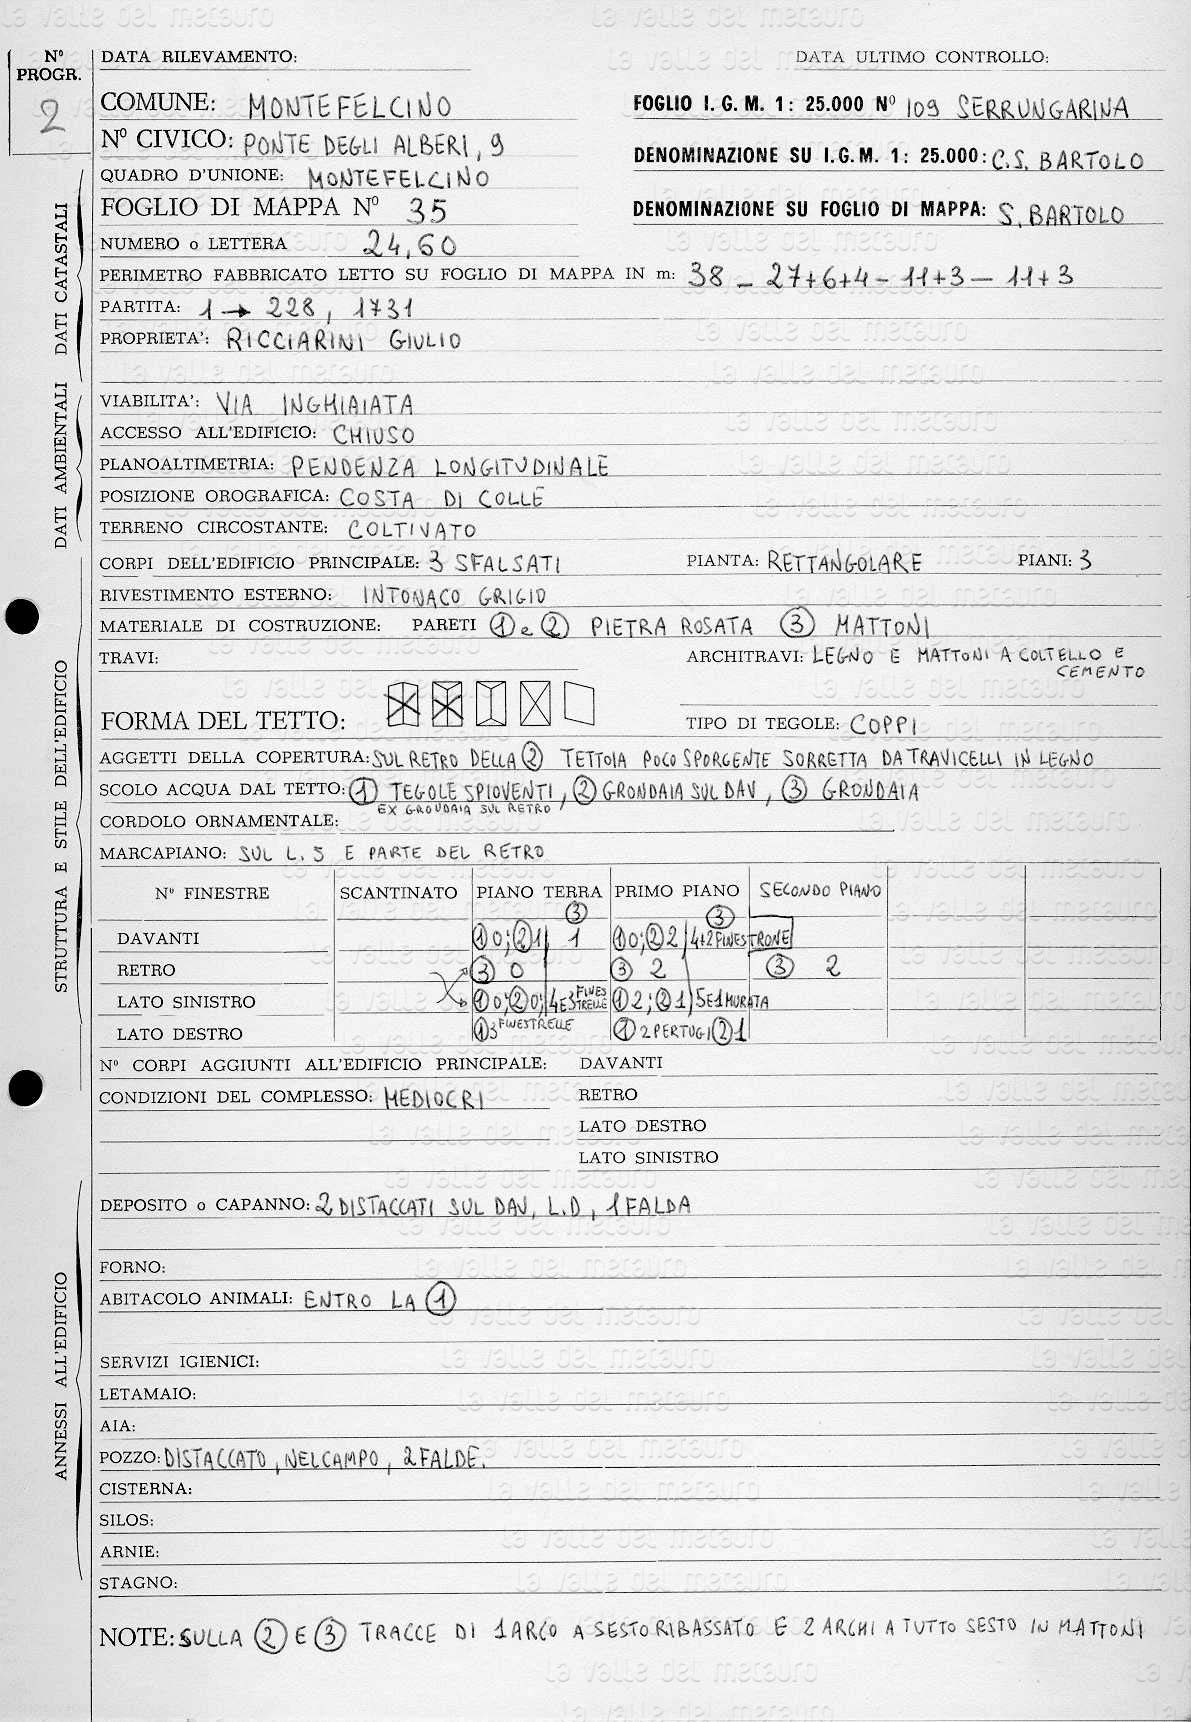 la valle del metauro
N° PROGR. 2
DATA RILEVAMENTO: DATA ULTIMO CONTROLLO:
COMUNE: MONTEFELCINO FOGLIO I. G. M. 1: 25.000 N° 109 SERRUNGARINA
N° CIVICO: PONTE DEGLI ALBERI, 9
DENOMINAZIONE SU I.G.M. 1: 25.000: C.S. BARTOLO
QUADRO D'UNIONE: MONTEFELCINO
FOGLIO DI MAPPA N° 35 DENOMINAZIONE SU FOGLIO DI MAPPA: S. BARTOLO
NUMERO o LETTERA 24,60
PERIMETRO FABBRICATO LETTO SU FOGLIO DI MAPPA IN m: 38 – 27+6+4 – 11+3 – 11+3
PARTITA: 1 → 228, 1731
PROPRIETA': RICCIARINI GIULIO
DATI CATASTALI
VIABILITA': VIA INGHIAIATA
ACCESSO ALL'EDIFICIO: CHIUSO
PLANOALTIMETRIA: PENDENZA LONGITUDINALE
POSIZIONE OROGRAFICA: COSTA DI COLLE
TERRENO CIRCOSTANTE: COLTIVATO
DATI AMBIENTALI
CORPI DELL'EDIFICIO PRINCIPALE: 3 SFALSATI PIANTA: RETTANGOLARE PIANI: 3
RIVESTIMENTO ESTERNO: INTONACO GRIGIO
MATERIALE DI COSTRUZIONE: PARETI ① e ② PIETRA ROSATA ③ MATTONI
TRAVI: ARCHITRAVI: LEGNO E MATTONI A COLTELLO E
CEMENTO
FORMA DEL TETTO: TIPO DI TEGOLE: COPPI
AGGETTI DELLA COPERTURA: SUL RETRO DELLA ② TETTOIA POCO SPORGENTE SORRETTA DA TRAVICELLI IN LEGNO
SCOLO ACQUA DAL TETTO: ① TEGOLE SPIOVENTI, ② GRONDAIA SUL DAV, ③ GRONDAIA
EX GRONDAIA SUL RETRO
CORDOLO ORNAMENTALE:
MARCAPIANO: SUL L. S E PARTE DEL RETRO
N° FINESTRE SCANTINATO PIANO TERRA PRIMO PIANO SECONDO PIANO
③ ③
DAVANTI ①0; ②1 1 ①0; ②2 4+2 FINESTRONE
RETRO ③ 0 ③ 2 ③ 2
LATO SINISTRO ①0; ②0; 4E3 FINESTRELLE ①2; ②1 5E1 MURATA
LATO DESTRO ①3 FINESTRELLE ①2 PERTUGI ②1
STRUTTURA E STILE DELL'EDIFICIO
N° CORPI AGGIUNTI ALL'EDIFICIO PRINCIPALE: DAVANTI
CONDIZIONI DEL COMPLESSO: MEDIOCRI RETRO
LATO DESTRO
LATO SINISTRO
DEPOSITO o CAPANNO: 2 DISTACCATI SUL DAV, L.D, 1 FALDA
FORNO:
ABITACOLO ANIMALI: ENTRO LA ①
SERVIZI IGIENICI:
LETAMAIO:
AIA:
POZZO: DISTACCATO, NEL CAMPO, 2 FALDE.
CISTERNA:
SILOS:
ARNIE:
STAGNO:
ANNESSI ALL'EDIFICIO
NOTE: SULLA ② E ③ TRACCE DI 1 ARCO A SESTO RIBASSATO E 2 ARCHI A TUTTO SESTO IN MATTONI